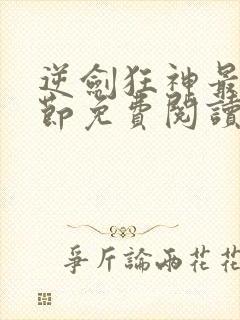 逆劍狂神最
節免費閱讀
爭斤論兩花花